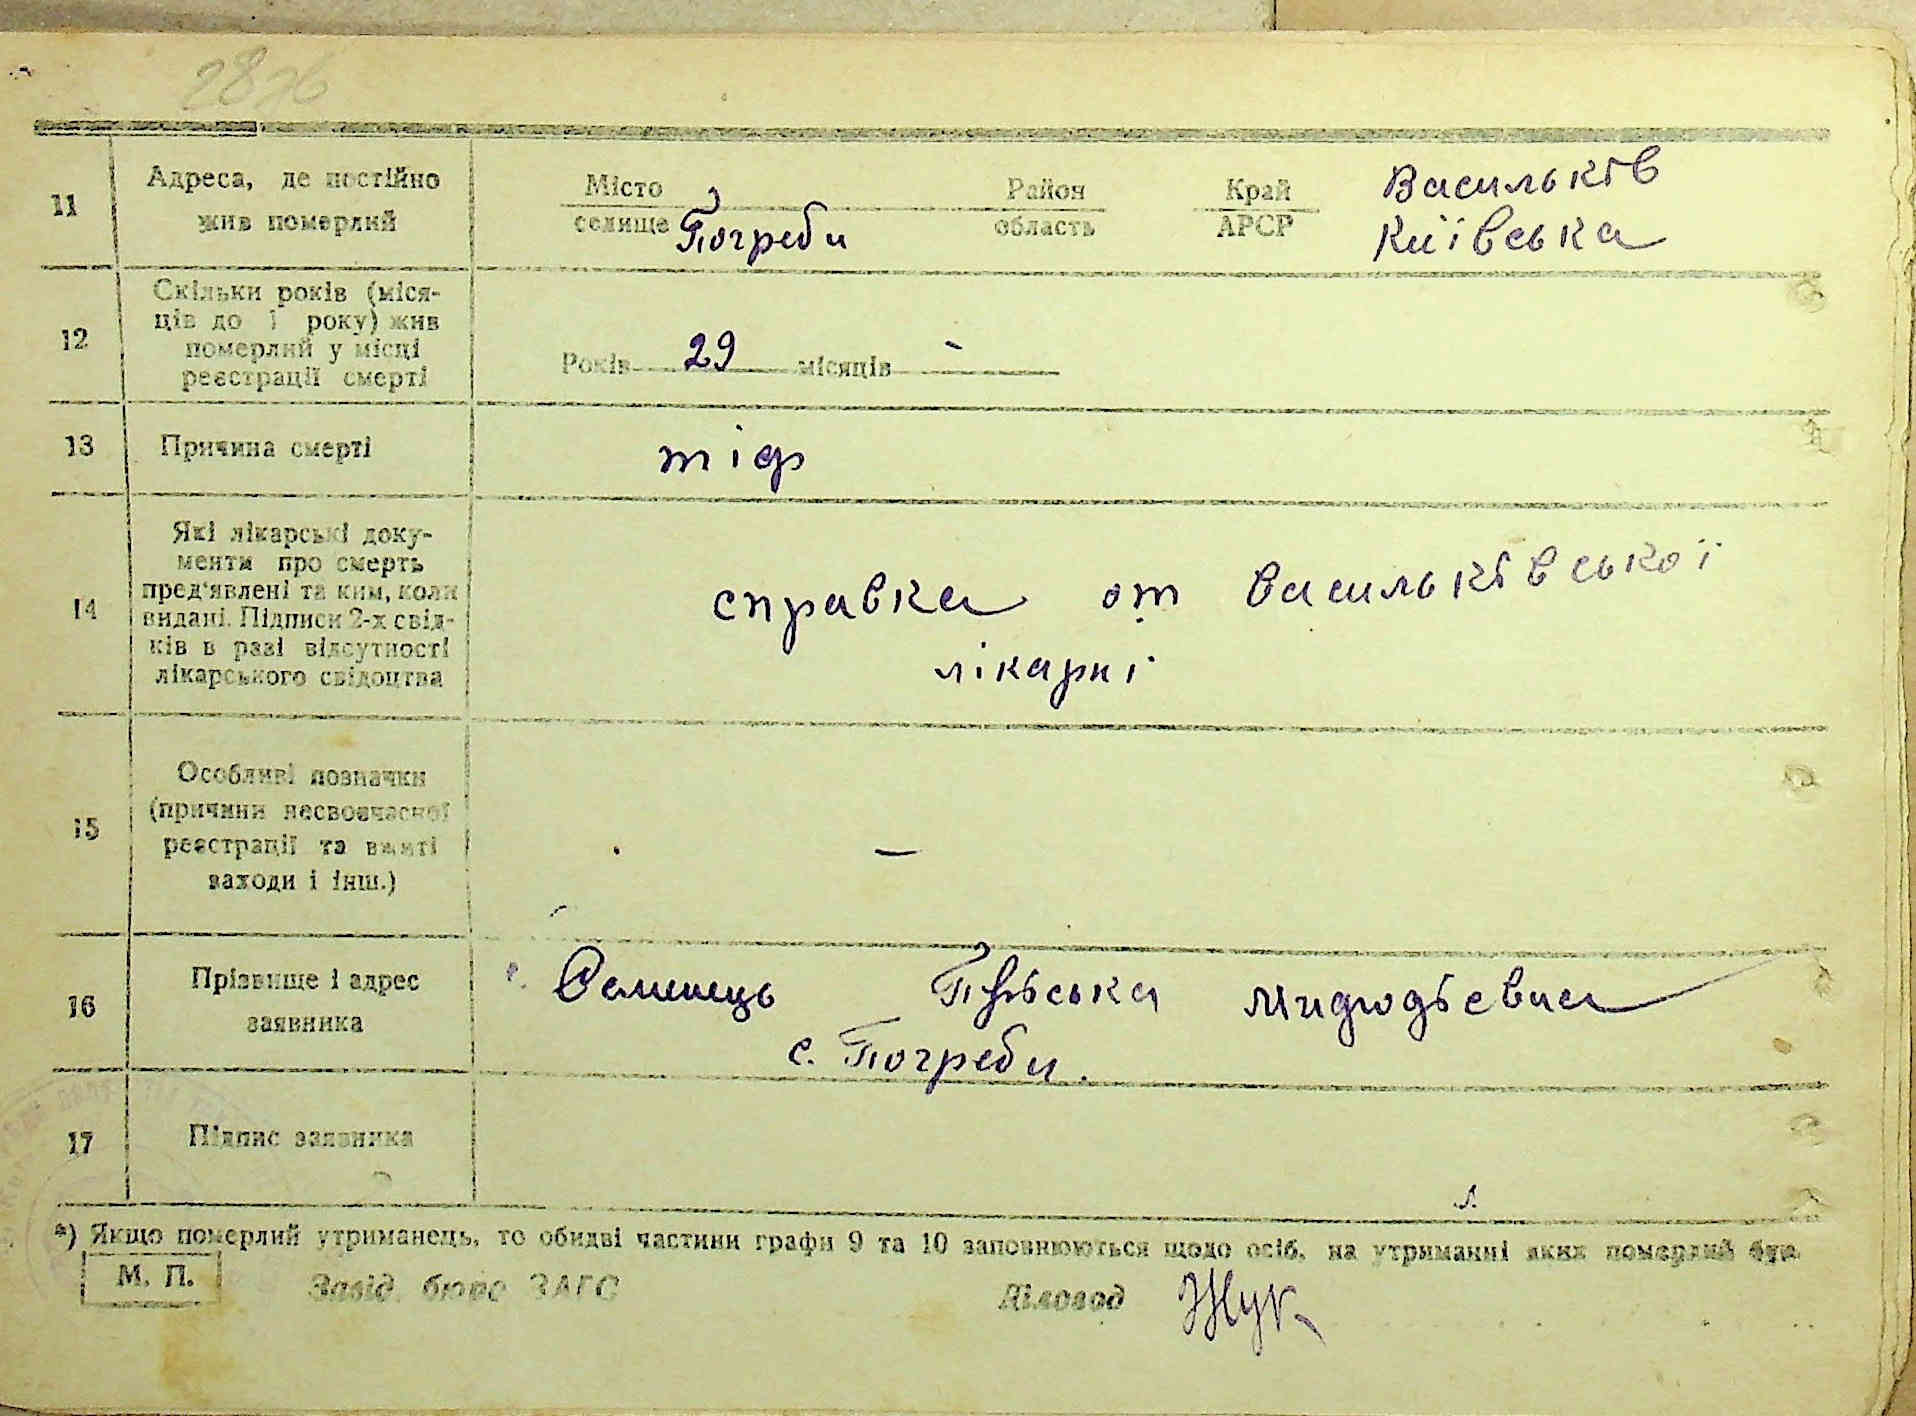 2876
11
Адреса, де постійно
жив померлий
Місто
селище
Погреби
Район
область
Край
АРСР
Васильків
Київська
12
Скільки років (міся-
ців до 1 року) жив
померлий у місці
реєстрації смерті
Років 29 місяців -
13
Причина смерті
тіф
14
Які лікарські доку-
менти про смерть
пред'явлені та ким, коли
видані. Підписи 2-х свід-
ків в разі відсутності
лікарського свідоцтва
справка от Васильківської
лікарні
15
Особливі позначки
(причини несвоєчасної
реєстрації та вжиті
заходи і інш.)
—
16
Прізвище і адрес
заявника
Семенець
с. Погреби.
17
Підпис заявника
*) Якщо померлий утриманець, то обидві частини графи 9 та 10 заповнюються щодо осіб, на утриманні яких померлий був.
М. П.
Завід. бюро ЗАГС
Діловод Жук